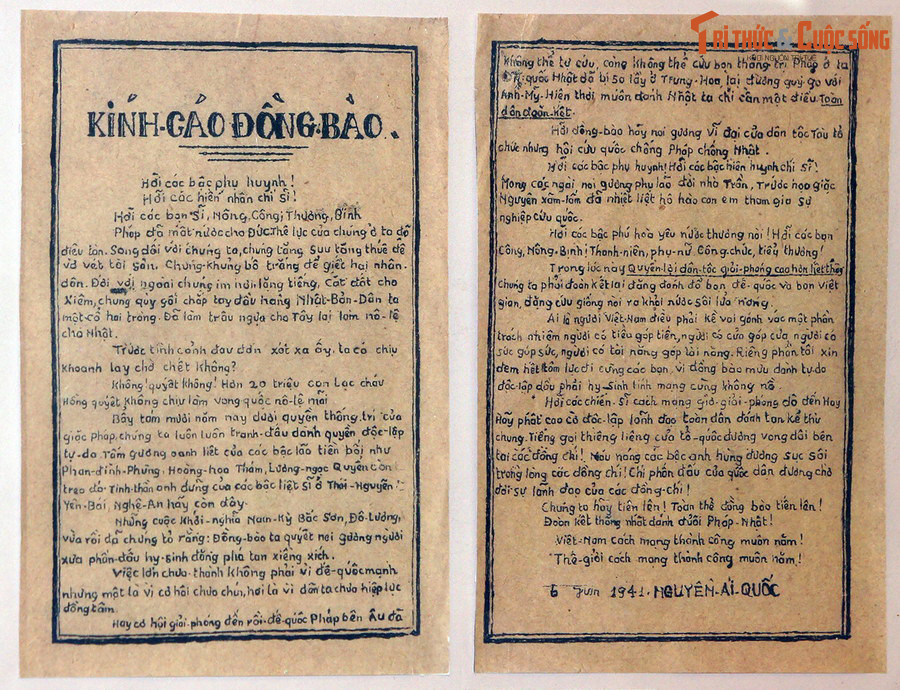 KÍNH-CÁO ĐỒNG-BÀO.
Hỡi các bậc phụ huynh!
Hỡi các hiền nhân chí sĩ!
Hỡi các bạn Sĩ, Nông, Công, Thương, Binh
Pháp đã mất nước cho Đức. Thế lực của chúng ở ta đã
điêu tàn. Song đối với chúng ta, chúng tăng sưu tăng thuế để
vơ vét tài sản. Chúng khủng bố trắng để giết hại nhân-
dân. Đối với ngoài chúng im hơi lặng tiếng, cắt đất cho
Xiêm, chúng quỳ gối chấp tay đầu hàng Nhật-Bản. Dân ta
một cổ hai tròng. Đã làm trâu ngựa cho Tây lại làm nô-lệ
cho Nhật.
Trước tình cảnh đau đớn xót xa ấy, ta có chịu
khoanh tay chờ chết không?
Không! quyết không! Hơn 20 triệu con Lạc cháu
Hồng quyết không chịu làm vong quốc nô-lệ mãi
Bẩy tám mươi năm nay dưới quyền thống-trị của
giặc Pháp, chúng ta luôn luôn tranh-đấu dành quyền độc-lập
tự-do. Tấm gương oanh liệt của các bậc lão tiền bối như
Phan-đình-Phùng, Hoàng-hoa Thám, Lương-ngọc Quyến còn
treo đó. Tinh-thần anh dũng của các bậc liệt sĩ ở Thái-Nguyên
Yên-Bái, Nghệ-An hãy còn đây.
Những cuộc Khởi-nghĩa Nam-Kỳ Bắc Sơn, Đô-Lương,
vừa rồi đã chứng tỏ rằng: Đồng-bào ta quyết noi gương người
xưa phấn-đấu hy-sinh đặng phá tan xiềng xích.
Việc lớn chưa thành không phải vì đế-quốc mạnh
nhưng một là vì cơ hội chưa chín, hai là vì dân ta chưa hiệp lực
đồng tâm.
Nay cơ hội giải-phóng đến rồi-đế-quốc Pháp bên Âu đã
TRI THỨC & CUỘC SỐNG
không thể tự cứu, cũng không thể cứu bọn thống trị Pháp ở ta
quốc Nhật đã bị sa lầy ở Trung-Hoa, lại đương quý gọ với
Anh-Mỹ. Hiện thời, muốn đánh Nhật ta chỉ cần một điều: Toàn
dân đoàn-kết.
Hỡi đồng-bào hãy noi gương vĩ đại của dân tộc Tàu tổ
chức những hội cứu quốc chống Pháp chống Nhật.
Hỡi các bậc phụ huynh! Hỡi các bậc hiền huynh chí sĩ!
Mong các ngài noi gương phụ lão đời nhà Trần, trước họa giặc
Nguyên xâm-lăm đã nhiệt liệt hô hào con em tham gia sự
nghiệp cứu quốc.
Hỡi các bậc phú hoà yêu nước thương nòi! Hỡi các bạn
Công, Nông, Binh! Thanh-niên, phụ-nữ. Công chức, tiểu thương!
Trong lúc này Quyền-lợi dân-tộc giải-phóng cao hơn hết thẩy
chúng ta phải đoàn kết lại đặng đánh đổ bọn đế-quốc và bọn Việt
gian, đặng cứu giống nòi ra khỏi nước sôi lửa nóng.
Ai là người Việt-Nam điều phải kề vai gánh vác một phần
trách nhiệm người có tiều góp tiền, người có của góp của, người có
sức góp sức, người có tài năng góp tài năng. Riêng phần tôi xin
đem hết tâm lực đi cùng các bạn, vì đồng bào mưu dành tự do
độc-lập dẫu phải hy-sinh tính mạng cũng không nề.
Hỡi các chiến-sĩ cách mạng giờ-giải-phóng đã đến. Hãy
Hãy phất cao cờ độc-lập lãnh đạo toàn dân đánh tan kẻ thù
chung. Tiếng gọi thiêng liêng của tổ-quốc đương vang dội bên
tai các đồng chí! Máu nóng các bậc anh hùng đương sục sôi
trong lòng các đồng chí! Chí phấn đấu của quốc dân đương chờ
đợi-sự lãnh đạo của các đồng-chí!
Chúng ta hãy tiến lên! Toàn thể đồng bào tiến lên!
Đoàn kết thống nhất đánh đuổi Pháp-Nhật!
Việt-Nam cách mạng thành công muôn năm!
Thế-giới cách mạng thành công muôn năm!
6 Juin 1941. NGUYỄN-ÁI-QUỐC